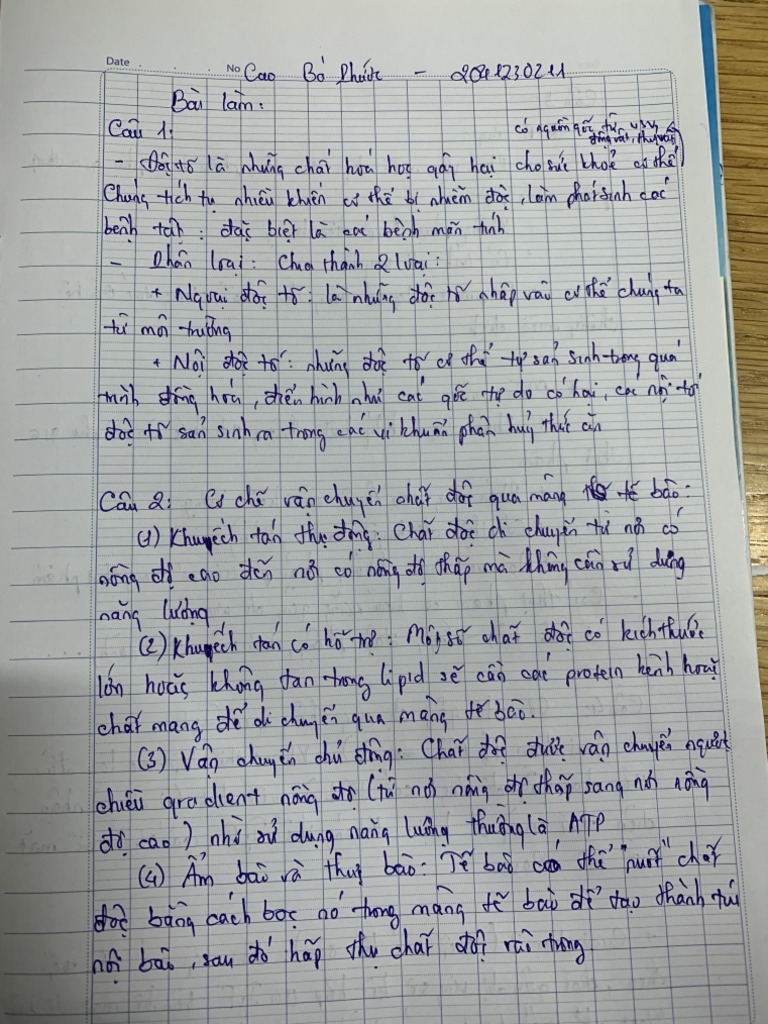 Date No Cao Bá Phước - 2041230211
Bài làm:
Câu 1:
có nguồn gốc từ vsv,
động vật, thực vật
- Độc tố là những chất hoá học gây hại cho sức khoẻ cơ thể
Chúng tích tụ nhiều khiến cơ thể bị nhiễm độc, làm phát sinh các
bệnh tật: đặc biệt là các bệnh mãn tính
- Phân loại: Chia thành 2 loại:
+ Ngoại độc tố: là những độc tố nhập vào cơ thể chúng ta
từ môi trường
+ Nội độc tố: những độc tố cơ thể tự sản sinh trong quá
trình đồng hoá, điển hình như các gốc tự do có hại, các nội tố
độc tố sản sinh ra trong các vi khuẩn phân huỷ thức ăn
Câu 2: Cơ chế vận chuyển chất độc qua màng tế bào:
(1) Khuyếch tán thụ động: Chất độc di chuyển từ nơi có
nồng độ cao đến nơi có nồng độ thấp mà không cần sử dụng
năng lượng
(2) Khuyếch tán có hỗ trợ: Một số chất độc có kích thước
lớn hoặc không tan trong lipid sẽ cần các protein kênh hoặc
chất mang để di chuyển qua màng tế bào.
(3) Vận chuyển chủ động: Chất độc được vận chuyển ngược
chiều gradient nồng độ (từ nơi nồng độ thấp sang nơi nồng
độ cao) nhờ sử dụng năng lượng thường là ATP
(4) Ẩm bào và thực bào: Tế bào có thể "nuốt" chất
độc bằng cách bọc nó trong màng tế bào để tạo thành túi
nội bào, sau đó hấp thụ chất độc vào trong